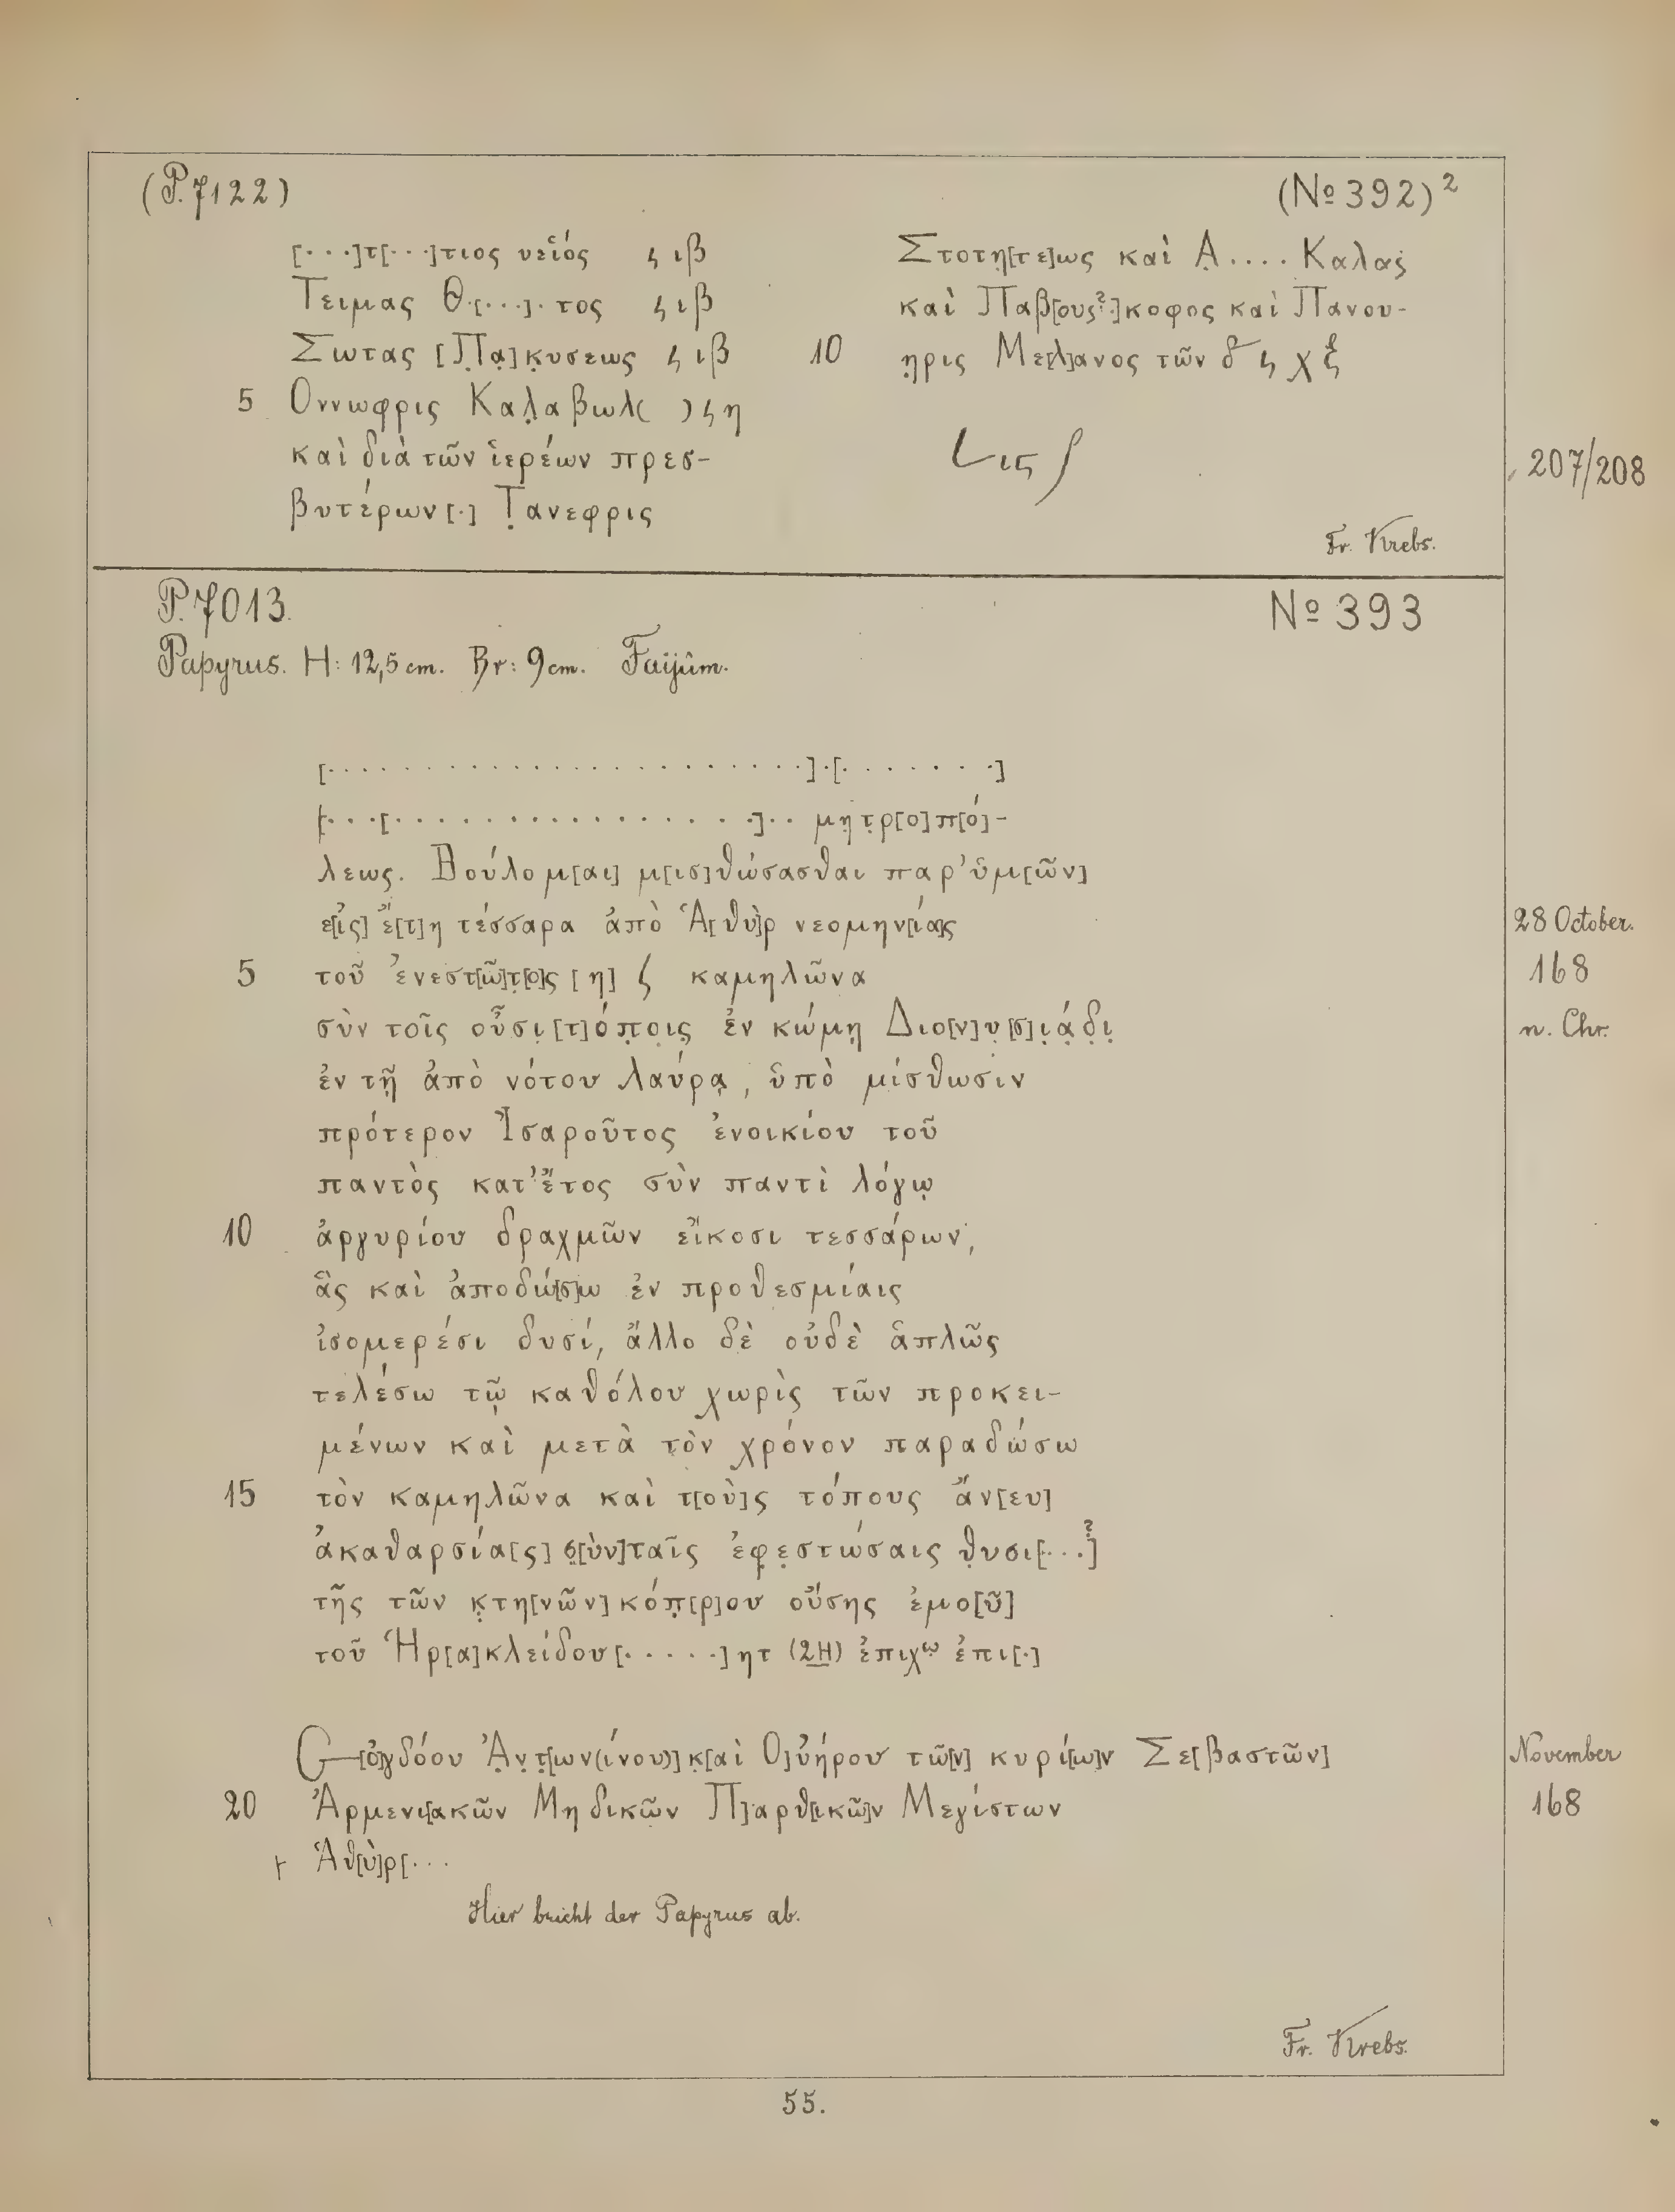 (P. 7122)
(№ 392)²
[....]τ[...]τιος υεἱός ϛ ιβ
Τειμας Θ.[...]. τος ϛ ιβ
Σωτας [Π̣α̣]κ̣υσεως ϛ ιβ
5 Οννωφρις Καλ̣αβωλ( ) ϛ η
καὶ διὰ τῶν ἱερέων πρεσ-
βυτέρων[.] Τ̣ανεφρις
Στοτη̣[τε]ως καὶ Α̣.... Καλας̣
καὶ Παβ[ους?.]κοφος καὶ Πανου-
10 η̣ρις Με[λ]ανος τῶν δ ϛ χ ξ
L ις ʃ
207/208
Fr. Krebs.
P. 7013.
№ 393
Papyrus. H: 12,5 cm. Br: 9 cm. Faijûm.
[........................].[........]
[...[.................].. μη̣τ̣ρ[ο]π[ό]-
λεως. Βούλομ[αι] μ[ισ]θώσασθαι παρ' ὑμ[ῶν]
ε[ἰς] ἔ[τ]η τέσσαρα ἀπὸ Ἁ[θὺ]ρ νεομην[ία]ς
28 October.
5 τοῦ ἐνεστ[ῶ]τ̣[ο]ς [η] ϛ καμηλῶνα
168
σὺν τοῖς οὖσι̣ [τ]ό̣π̣ο̣ι̣ς ἐν κώμῃ Διο[ν]υ̣[σ]ι̣ά̣δ̣ι̣
n. Chr.
ἐν τῇ ἀπὸ νότου λαύρᾳ, ὑπὸ μίσθωσιν
πρότερον Ἰσαροῦτος ἐνοικίου τοῦ
παντὸς κατ' ἔτος σὺν παντὶ λόγῳ
10 ἀργυρίου δραχμῶν εἴκοσι τεσσάρων,
ἃς καὶ ἀποδώ[σ]ω ἐν προθεσμίαις
ἰσομερέσι δυσί, ἄλλο δὲ οὐδὲ ἁπλῶς
τελέσω τῷ καθόλου χωρὶς τῶν προκει-
μένων καὶ μετὰ τὸν χρόνον παραδώσω
15 τὸν καμηλῶνα καὶ τ[οὺ]ς τόπους ἄν[ευ]
ἀκαθαρσία[ς] σ̣[ὺν] ταῖς ἐφ̣ε̣στώσαις θ̣υσι[...?]
τῆς τῶν κ̣τη[νῶν] κόπ̣[ρ]ου οὔσης ἐμο[ῦ]
τοῦ Ἡρ[α]κλείδου [.....]ητ (2H) ἐπιχῳ ἐπι[.]
[ὀ]γδόου Ἀ̣ν̣τ̣[ων(ίνου)] κ̣[αὶ Ο]ὐήρου τῶ[ν] κυρί[ω]ν Σε[βαστῶν]
November
20 Ἀρμενι[ακῶν Μηδικῶν Π]αρθ[ικῶ]ν Μεγίστων
168
Ἁθ[ὺ]ρ [...
Hier bricht der Papyrus ab.
Fr. Krebs.
55.